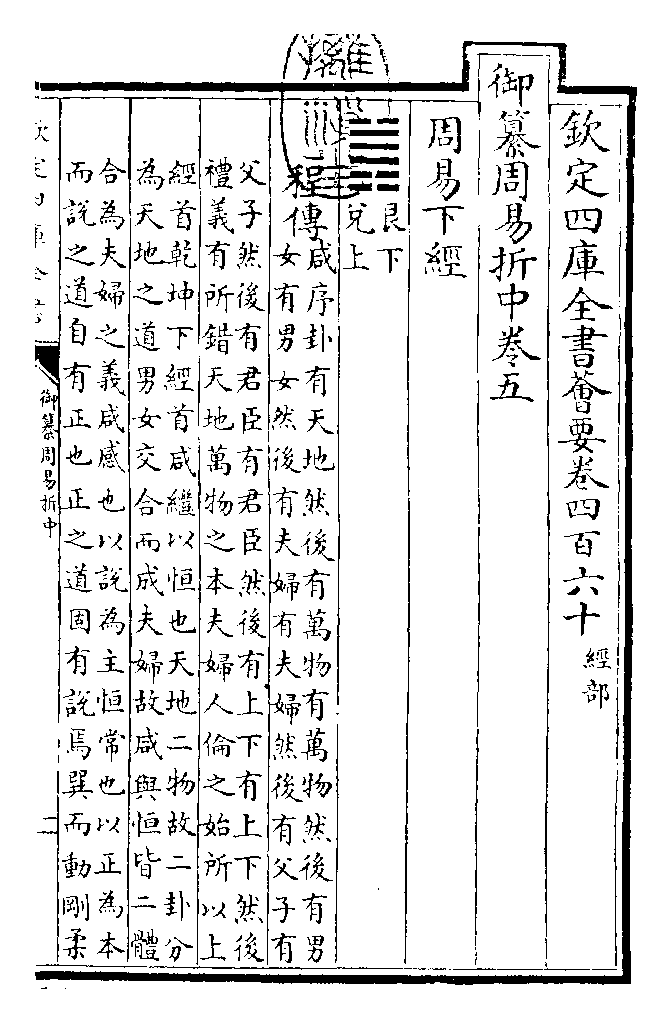 欽定四庫全書薈要卷四百六十 經部
御纂周易折中卷五
周易下經
艮下
兌上
程傳 咸序卦有天地然後有萬物有萬物然後有男
女有男女然後有夫婦有夫婦然後有父子有
父子然後有君臣有君臣然後有上下有上下然後
禮義有所錯天地萬物之本夫婦人倫之始所以上
經首乾坤下經首咸繼以恒也天地二物故二卦分
為天地之道男女交合而成夫婦故咸與恒皆二體
合為夫婦之義咸感也以說為主恒常也以正為本
而說之道自有正也正之道固有說焉巽而動剛柔
欽定四庫全書
御纂周易折中
二